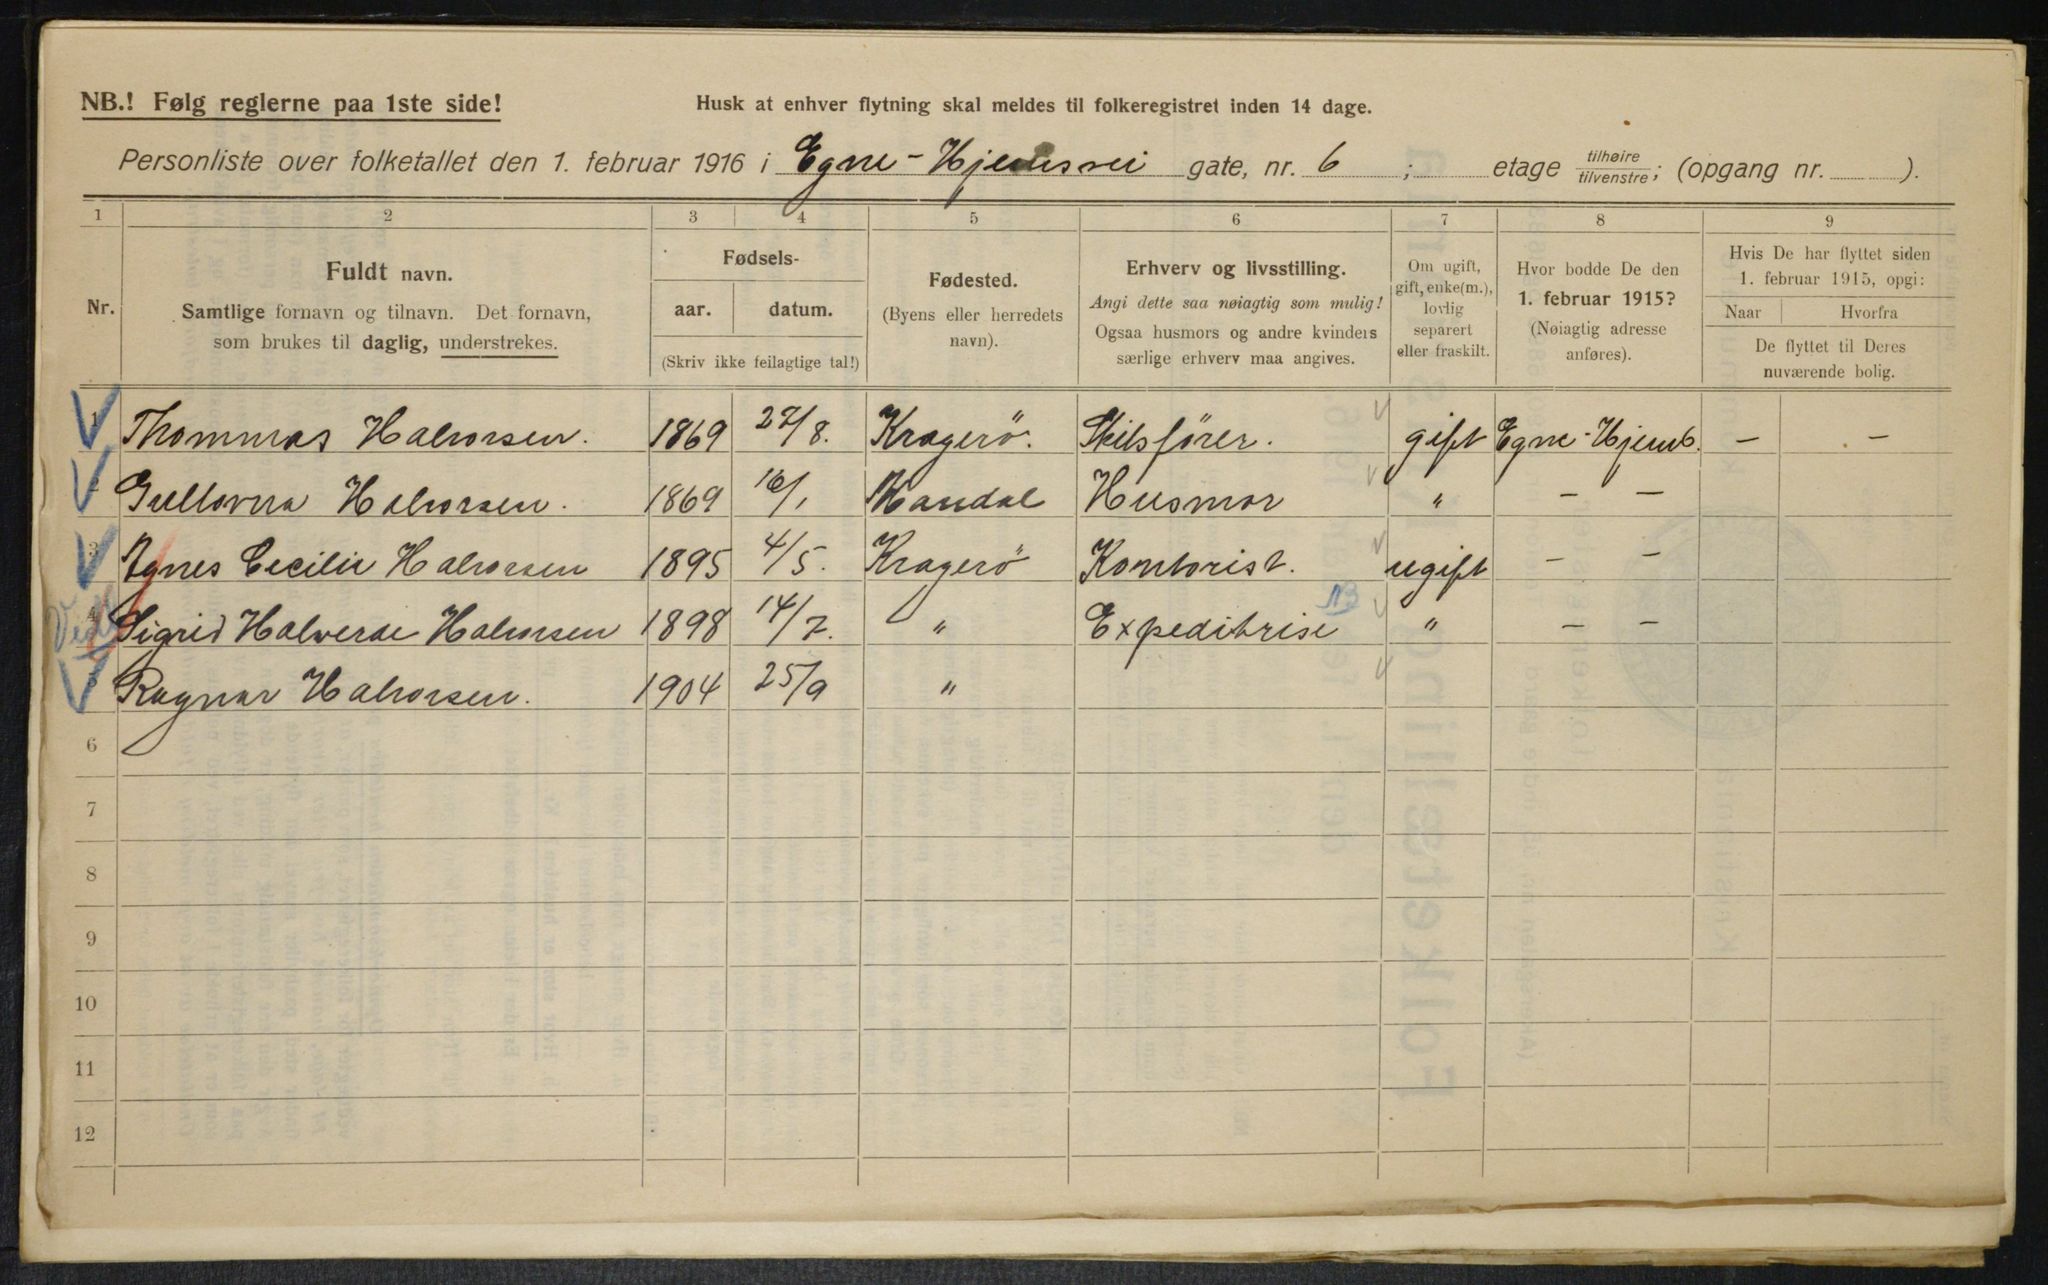 NB.! Følg reglerne paa 1ste side!
Husk at enhver flytning skal meldes til folkeregistret inden 14 dage.
Personliste over folketallet den 1. februar 1916 i Egne-Hjemsvei gate, nr. 6 ; etage tilhøire tilvenstre ; (opgang nr. ).
1 2 3 4 5 6 7 8 9
Nr.
Fuldt navn.
Samtlige fornavn og tilnavn. Det fornavn,
som brukes til daglig, understrekes.
Fødsels-
aar. datum.
(Skriv ikke feilagtige tal!)
Fødested.
(Byens eller herredets
navn).
Erhverv og livsstilling.
Angi dette saa nøiagtig som mulig!
Ogsaa husmors og andre kvinders
særlige erhverv maa angives.
Om ugift,
gift, enke(m.),
lovlig
separert
eller fraskilt.
Hvor bodde De den
1. februar 1915?
(Nøiagtig adresse
anføres).
Hvis De har flyttet siden
1. februar 1915, opgi:
Naar Hvorfra
De flyttet til Deres
nuværende bolig.
1 Thommas Halvorsen. 1869 27/8. Kragerö. Skibsförer. gift Egne-Hjem 6. — —
2 Gullovna Halvorsen. 1869 16/1 Mandal Husmor " — —
3 Agnes Cecilie Halvorsen 1895 4/5. Kragerö Kontorist. ugift — —
4 Sigrid Halverde Halvorsen 1898 14/7. " Expeditrise " — —
5 Ragnar Halvorsen. 1904 25/9 "
6
7
8
9
10
11
12